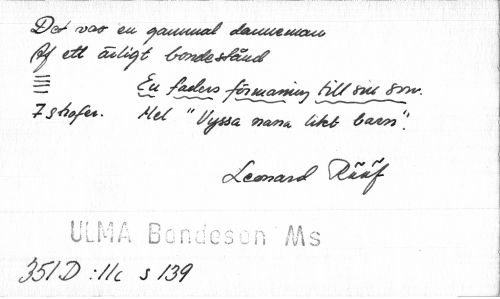 Det var en gammal danneman
Af ett ärligt bondestånd
En faders förmaning till sin son.
7 strofer. Mel "Vyssa nana likt barn".
Leonard Rääf
ULMA Bondeson Ms
351 D :11c s 139